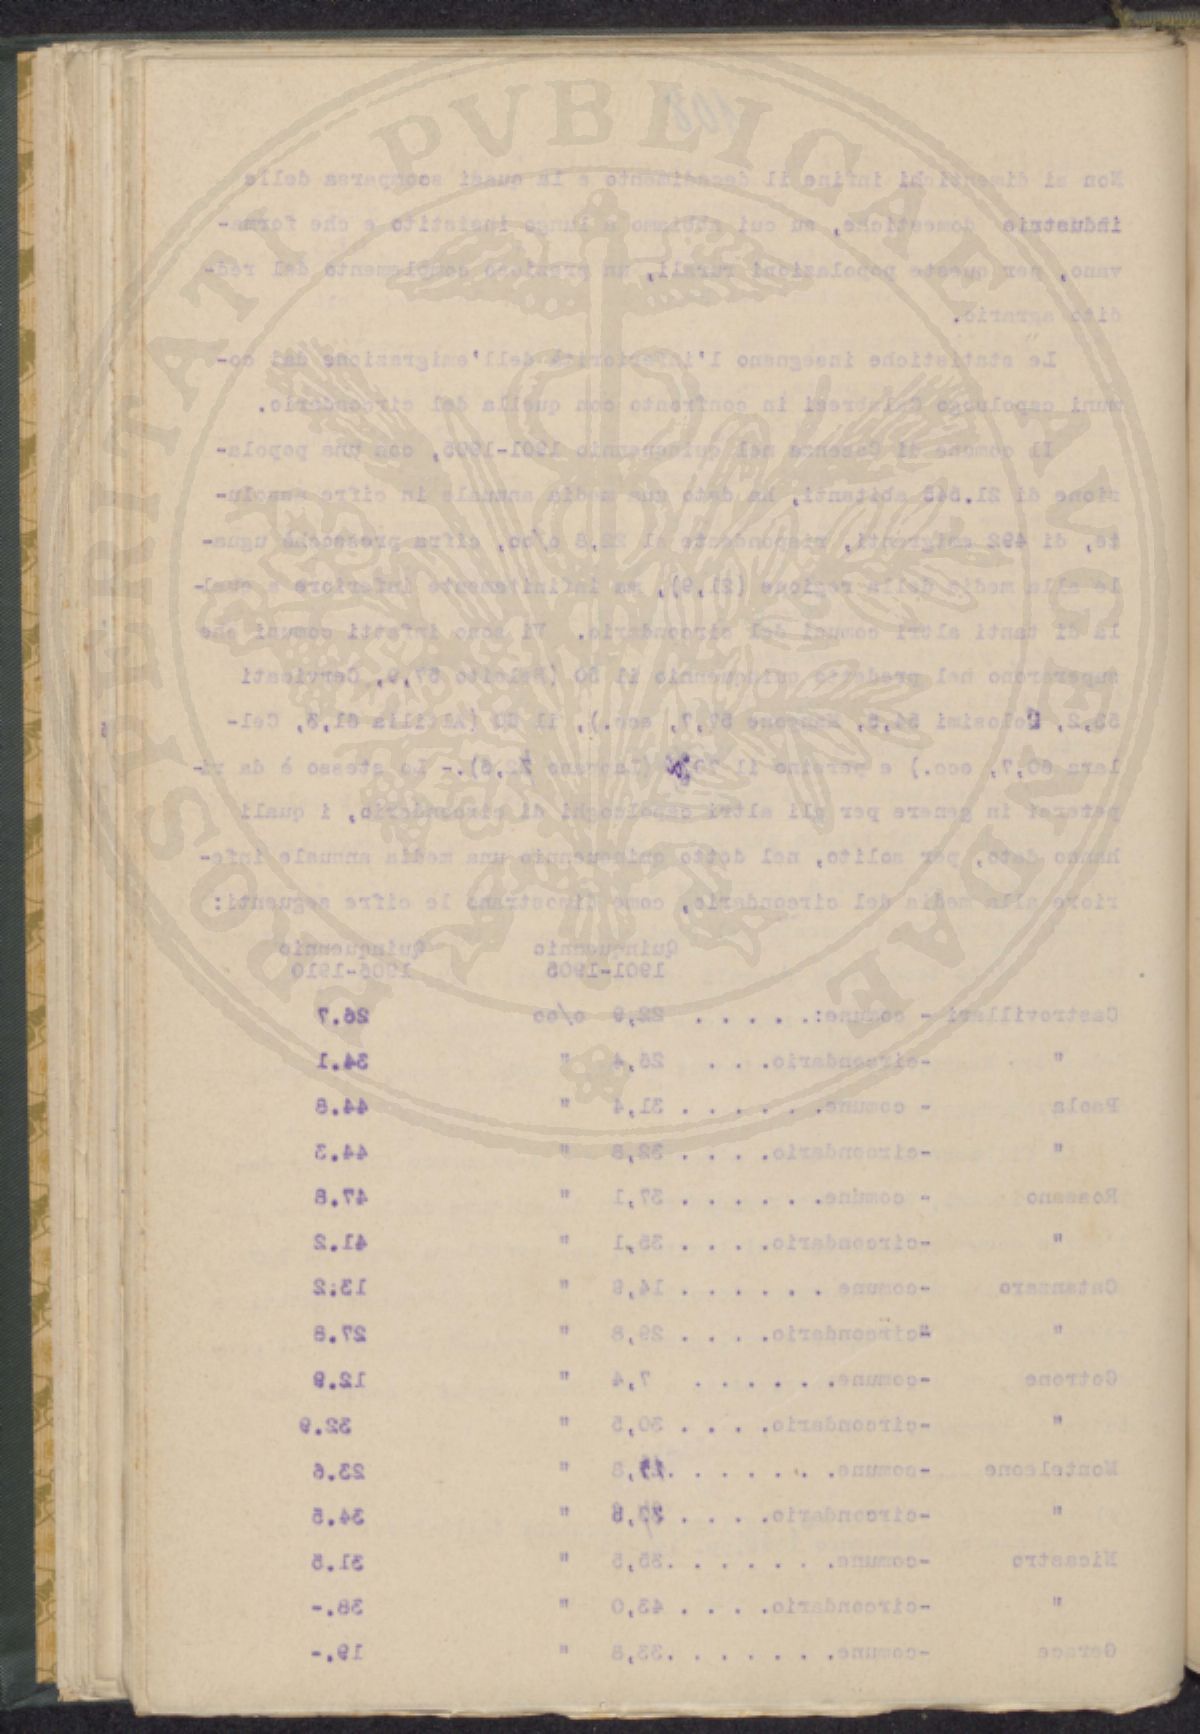 108
Non si dimentichi infine il decadimento e la quasi scomparsa delle
industrie domestiche, su cui abbiamo a lungo insistito e che forma-
vano, per queste popolazioni rurali, un prezioso complemento del red-
dito agrario.
Le statistiche insegnano l'inferiorità dell'emigrazione dai co-
muni capoluogo Calabresi in confronto con quella del circondario.
Il comune di Cosenza nel quinquennio 1901-1905, con una popola-
zione di 21.545 abitanti, ha dato una media annuale in cifre assolu-
te, di 492 emigranti, rispondente al 22,8 o/oo, cifra pressochè ugua-
le alla media della regione (21,9), ma infinitamente inferiore a quel-
la di tanti altri comuni del circondario. Vi sono infatti comuni che
superarono nel predetto quinquennio il 50 (Belsito 57,9, Cervicati
53,2, Pelosimi 54,5, Mangone 57,7, ecc.), il 60 (Altilia 61,5, Cel-
lara 60,7, ecc.) e persino il 70 (Lappano 72,6).- Lo stesso è da ri-
petersi in genere per gli altri capoluoghi di circondario, i quali
hanno dato, per solito, nel detto quinquennio una media annuale infe-
riore alla media del circondario, come dimostrano le cifre seguenti:
Quinquennio Quinquennio
1901-1905 1906-1910
Castrovillari - comune:. . . . . 22,9 o/oo 26.7
" -circondario. . . 26,4 " 34.1
Paola - comune. . . . . . 31,4 " 44.8
" -circondario. . . . 32,8 " 44.3
Rossano - comune. . . . . . 37,1 " 47.8
" -circondario. . . . 35,1 " 41.2
Catanzaro -comune . . . . . . 14,9 " 13.2
" -circondario. . . . 29,8 " 27.8
Cotrone -comune. . . . . . 7,4 " 12.9
" -circondario. . . . 30,5 " 32.9
Monteleone -comune. . . . . . . ,8 " 23.6
" -circondario. . . . ,8 " 34.5
Nicastro -comune. . . . . . .35,5 " 31.5
" -circondario. . . . 43,0 " 38.-
Gerace -comune. . . . . . .33,8 " 19.-
PROSPERITATI PVBLICAE AVGENDAE